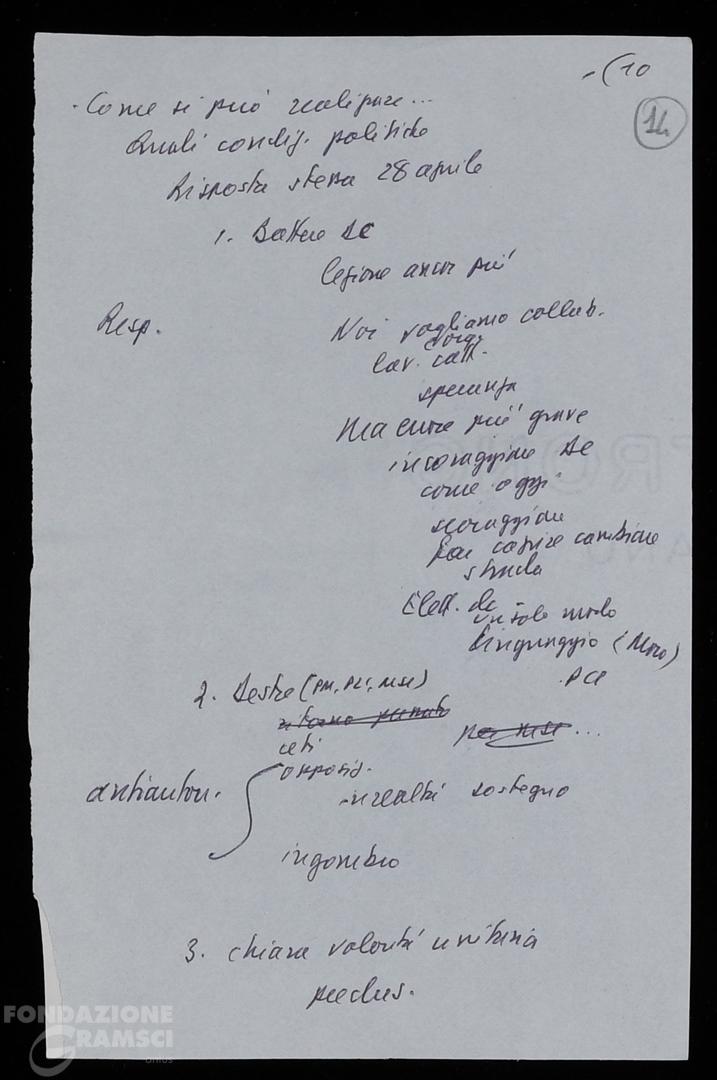 -(10
14
- Come si può realizzare...
Quali condiz. politiche
Risposta stessa 28 aprile
1. Battere DC
lezione ancor più
Resp.
Noi vogliamo collab.
lav. catt.
speranza
Ma errore più grave
incoraggiare DC
come oggi
scoraggiare
Far capire cambiare
strada
Elett. dc
un solo modo
linguaggio (Moro)
PCI
2. Destre (PM, PLI, MSI)
ceti
opposiz.
antiauton.
in realtà sostegno
ingombro
3. chiara volontà unitaria
preclus.
FONDAZIONE
GRAMSCI
onlus